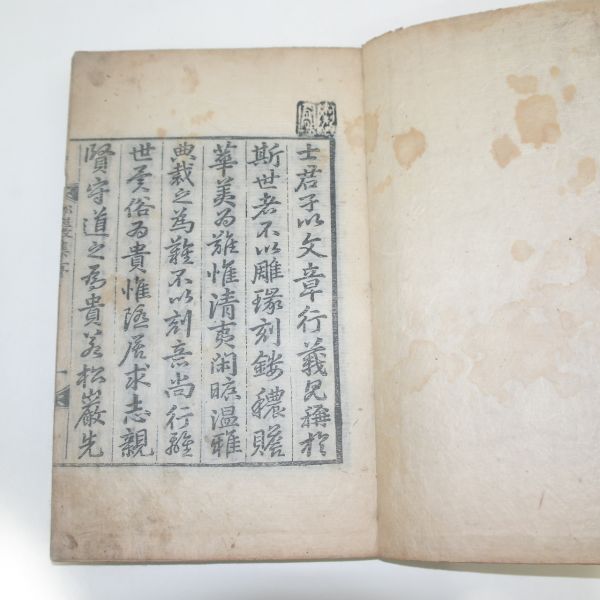 士君子以文章行義見稱於
斯世者不以雕琢刻鏤穠贍
華美為難惟清夷閑曠溫雅
典裁之為難不以刻意尚行離
世異俗為貴惟隱居求志親
賢守道之為貴若松巖先
松巖集序